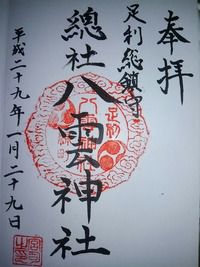 奉拝
足利総鎮守
總社八雲神社
平成二十九年一月二十九日